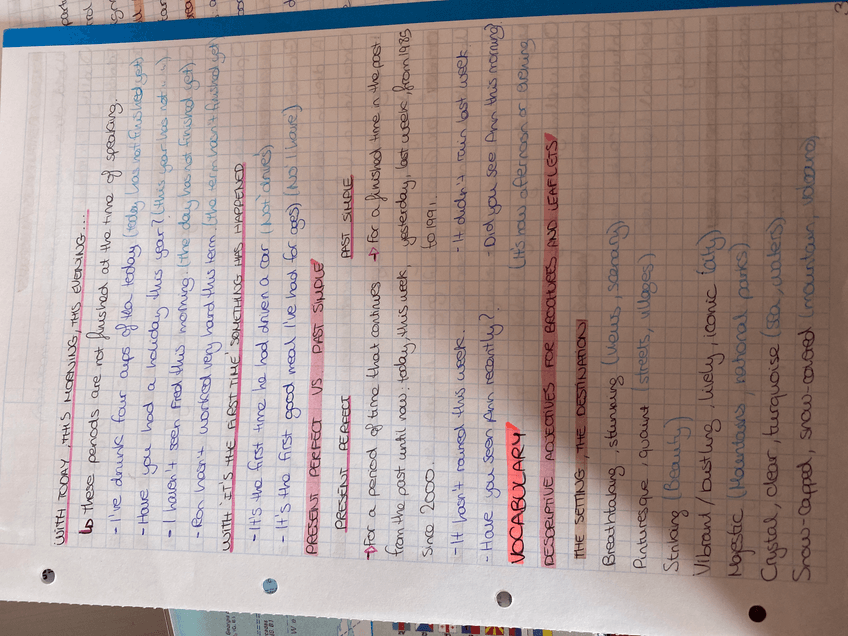 WITH TODAY, THIS MORNING, THIS EVENING...
↳ these periods are not finished at the time of speaking.
- I've drunk four cups of tea today (today has not finished yet)
- Have you had a holiday this year? (this year has not
- I haven't seen Fred this morning. (the day has not finished yet)
- Ron hasn't worked very hard this term. (the term hasn't finished yet
WITH "IT'S THE FIRST TIME SOMETHING HAS HAPPENED
- It's the first time he had driven a car (Not drives)
- It's the first good meal I've had for ages) (No I have)
PRESENT PERFECT VS PAST SIMPLE
PRESENT PERFECT
→ For a period of time that continues
from the past until now: today, this week,
since 2000.
- It hasn't rained this week..
- Have you seen Ann recently?
PAST SIMPLE
→ For a finished time in the past
yesterday, last week, from 1985
to 1991.
- It didn't rain last week
- Did you see Ann this morning
(It's now afternoon or evening
VOCABULARY
DESCRIPTIVE ADJECTIVES FOR BROCHURES AND LEAFLETS
THE SETTING, THE DESTINATION
Breathtaking, stunning (views, scenary)
Picturesque, quaint (streets, villages)
Striking (Beauty)
Vibrant / bustling, lively, iconic (city)
Majestic (Mountains, national parks)
Crystal, clear, turquoise (sea, waters)
Snow-capped, snow-covered (mountain, volcano)